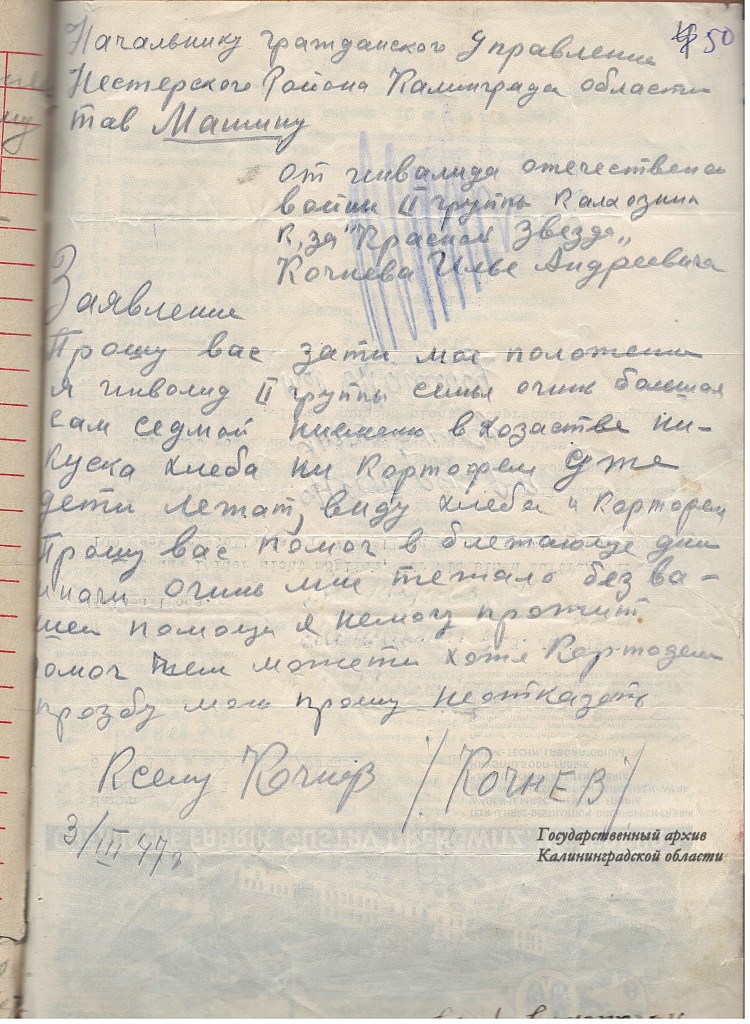 50
Начальнику гражданского Управления
Нестерского Района Калинграда области
тав Машину
от инвалида отечествено
войны II группы Калхозник
К,за "Красная Звезда"
Кочнева Илье Андреевича
Заявление
Прошу вас зати мое положени
я инволид II группы семья очинь большая
сам седмой нисмею в хозастве ни-
куска хлеба ни Картофеля Дже
дети лежат, виду хлеба и Картофеля
Прошу вас помоч в блежающе дни
иначи очинь мне тежало без ва-
шей помощи я немогу прожит
помоч чем можети хотя Картофелем
прозбу мою прошу неотказать
Ксему Кочнев /КОЧНЕВ/
3/III 47г
Государственный архив
Калининградской области